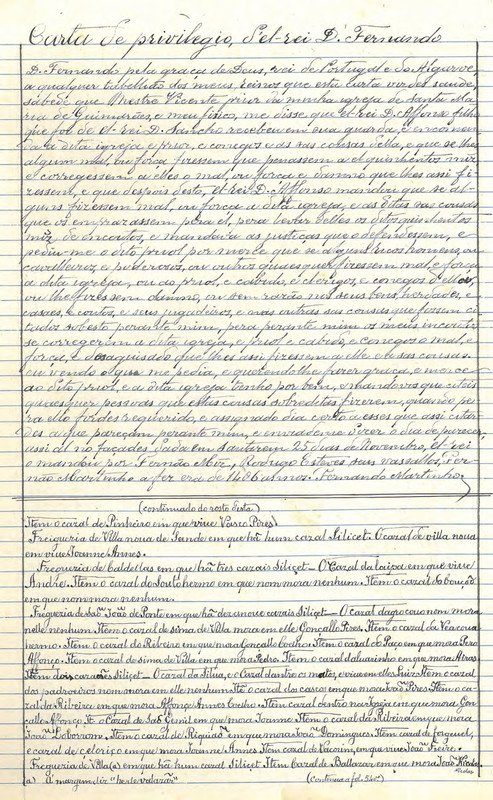 Carta de privilegio, d'el-rei D. Fernando
D. Fernando pela graça de Deus, rei de Portugal e do Algarve,
a qualquer tabellião dos meus reinos que esta carta vir des saude,
sabede que Mestre Vicente prior da minha igreja de Santa Ma
ria de Guimarães, e meu fisico, me disse que el-rei D. Affonso filho
que foi de el-rei D. Sancho recebeu em sua guarda, e encomen
da a dita igreja e prior, e conegos e as sas cousas della, e que se lhes
algum mal, ou força fizessem que penassem a el quinhentos mrz
e corregessem a elles o mal, ou força e damno que lhes assi fi
zessem, e que despois desto, el-rei D. Affonso mandou que se al-
guns fizessem mal, ou força a dita igreja, e as ditas sas cousas
que os emprazassem pera el, pera levar delles os ditos quinhentos
mrz de encoutos, e mandava as justiças que o defendessem, e
pediu-me o dito priol por merce que se alguns ricos homens, ou
cavalleiros, e poderosos, ou outros quaesquer fizessem mal, e força
a dita igreja, ou ao priol, e cabido, e clerigos, e conegos d'ella,
ou lhe fizessem damno, ou sem razão nos seus bens, herdades, e
casaes, e coutos, e seus jugadeiros, e nas outras sas cousas que fossem ci-
tados sobr'esto perante mim, pera perante mim os meus incoutos
se corregerem a dita igreja, e priol, e cabido, e conegos o mal, e
força, e desaguisado que lhes assi fizessem a elle e he sas cousas.
eu vendo o que me pedia, e querendo lhe fazer graça, e merce
ao dito priol, e a dita igreja tenho por bem, e mando vos que citeis
quaesquer pessoas que estas cousas sobreditas fizerem, quando pe-
ra ello fordes requerido, e assignado dia certo a esses que assi citar-
des a que pareçam perante mim, e enviademe dizer o dia de parecer
assi al no façades. Dada em Santarem 25 dias de Novembro, el-rei
o mandou por Fernão Miz, Rodrigo Esteves seus vassallos, Fer
não Martinho a fez era de 1406 annos. Fernando Martinho
(continuado do rosto desta)
Item o cazal de Pinheiro em que vive Vasco Peres.
Freigueria de Villa nova de Sande em que há hum cazal Silicet. O cazal de villa nova
em vive Joanne Annes.
Fregueria de Caldellas em que há tres cazais Siliçet — O Cazal da Caipa em que vive
André. Item o cazal do souto hermo em que nom mora nenhum. Item o cazal do bouçó
em que nom mora nenhum.
Fregueria de Saõ Joaõ de Ponte em que há dezanoue cazais Siliçet — O cazal dagro cauo nom mora
nelle nenhum. Item o cazal de sima de Villa mora em elle Gonçallo Pires. Item o cazal da
hermo. Item o cazal do Ribeiro em que mora Gonçallo Coelho. Item o cazal do Paço em que mora Pero
Affonço. Item o cazal de sima de Villa em que mora Pedro. Item o cazal dalvarinho em que mora Alvaro
Item dois cazaes Siliçet — O cazal da Silua, e o Cazal dantre os matos, e vive em elles Luiz. Item o cazal
dos padroeiros nom mora em elle nenhum. Ite o cazal da carço em que mora Joaõ Pires. Item o ca-
zal da Ribeira em que mora Affonço Annes Coelho. Item cazal dentro na Igreja em que mora Gon-
callo Affonço. Ite o Cazal de Saõ Genil em que mora Joanne. Item o cazal da Ribeira em que mora
Joaõ Item o cazal de Riguiaõ em que mora Joaõ Domingues. Item o cazal de forquel,
e o cazal de celorico em que mora Joanne Annes. Item cazal de Varzim, em que vive Joaõ Freire.
Fregueria de Villa (a) em que há hum cazal Siliçet. Item Cazal de Baltazar em que mora Joaõ
(a) Á margem diz "he de vidraõ" (Continua a fol. 51 v.)